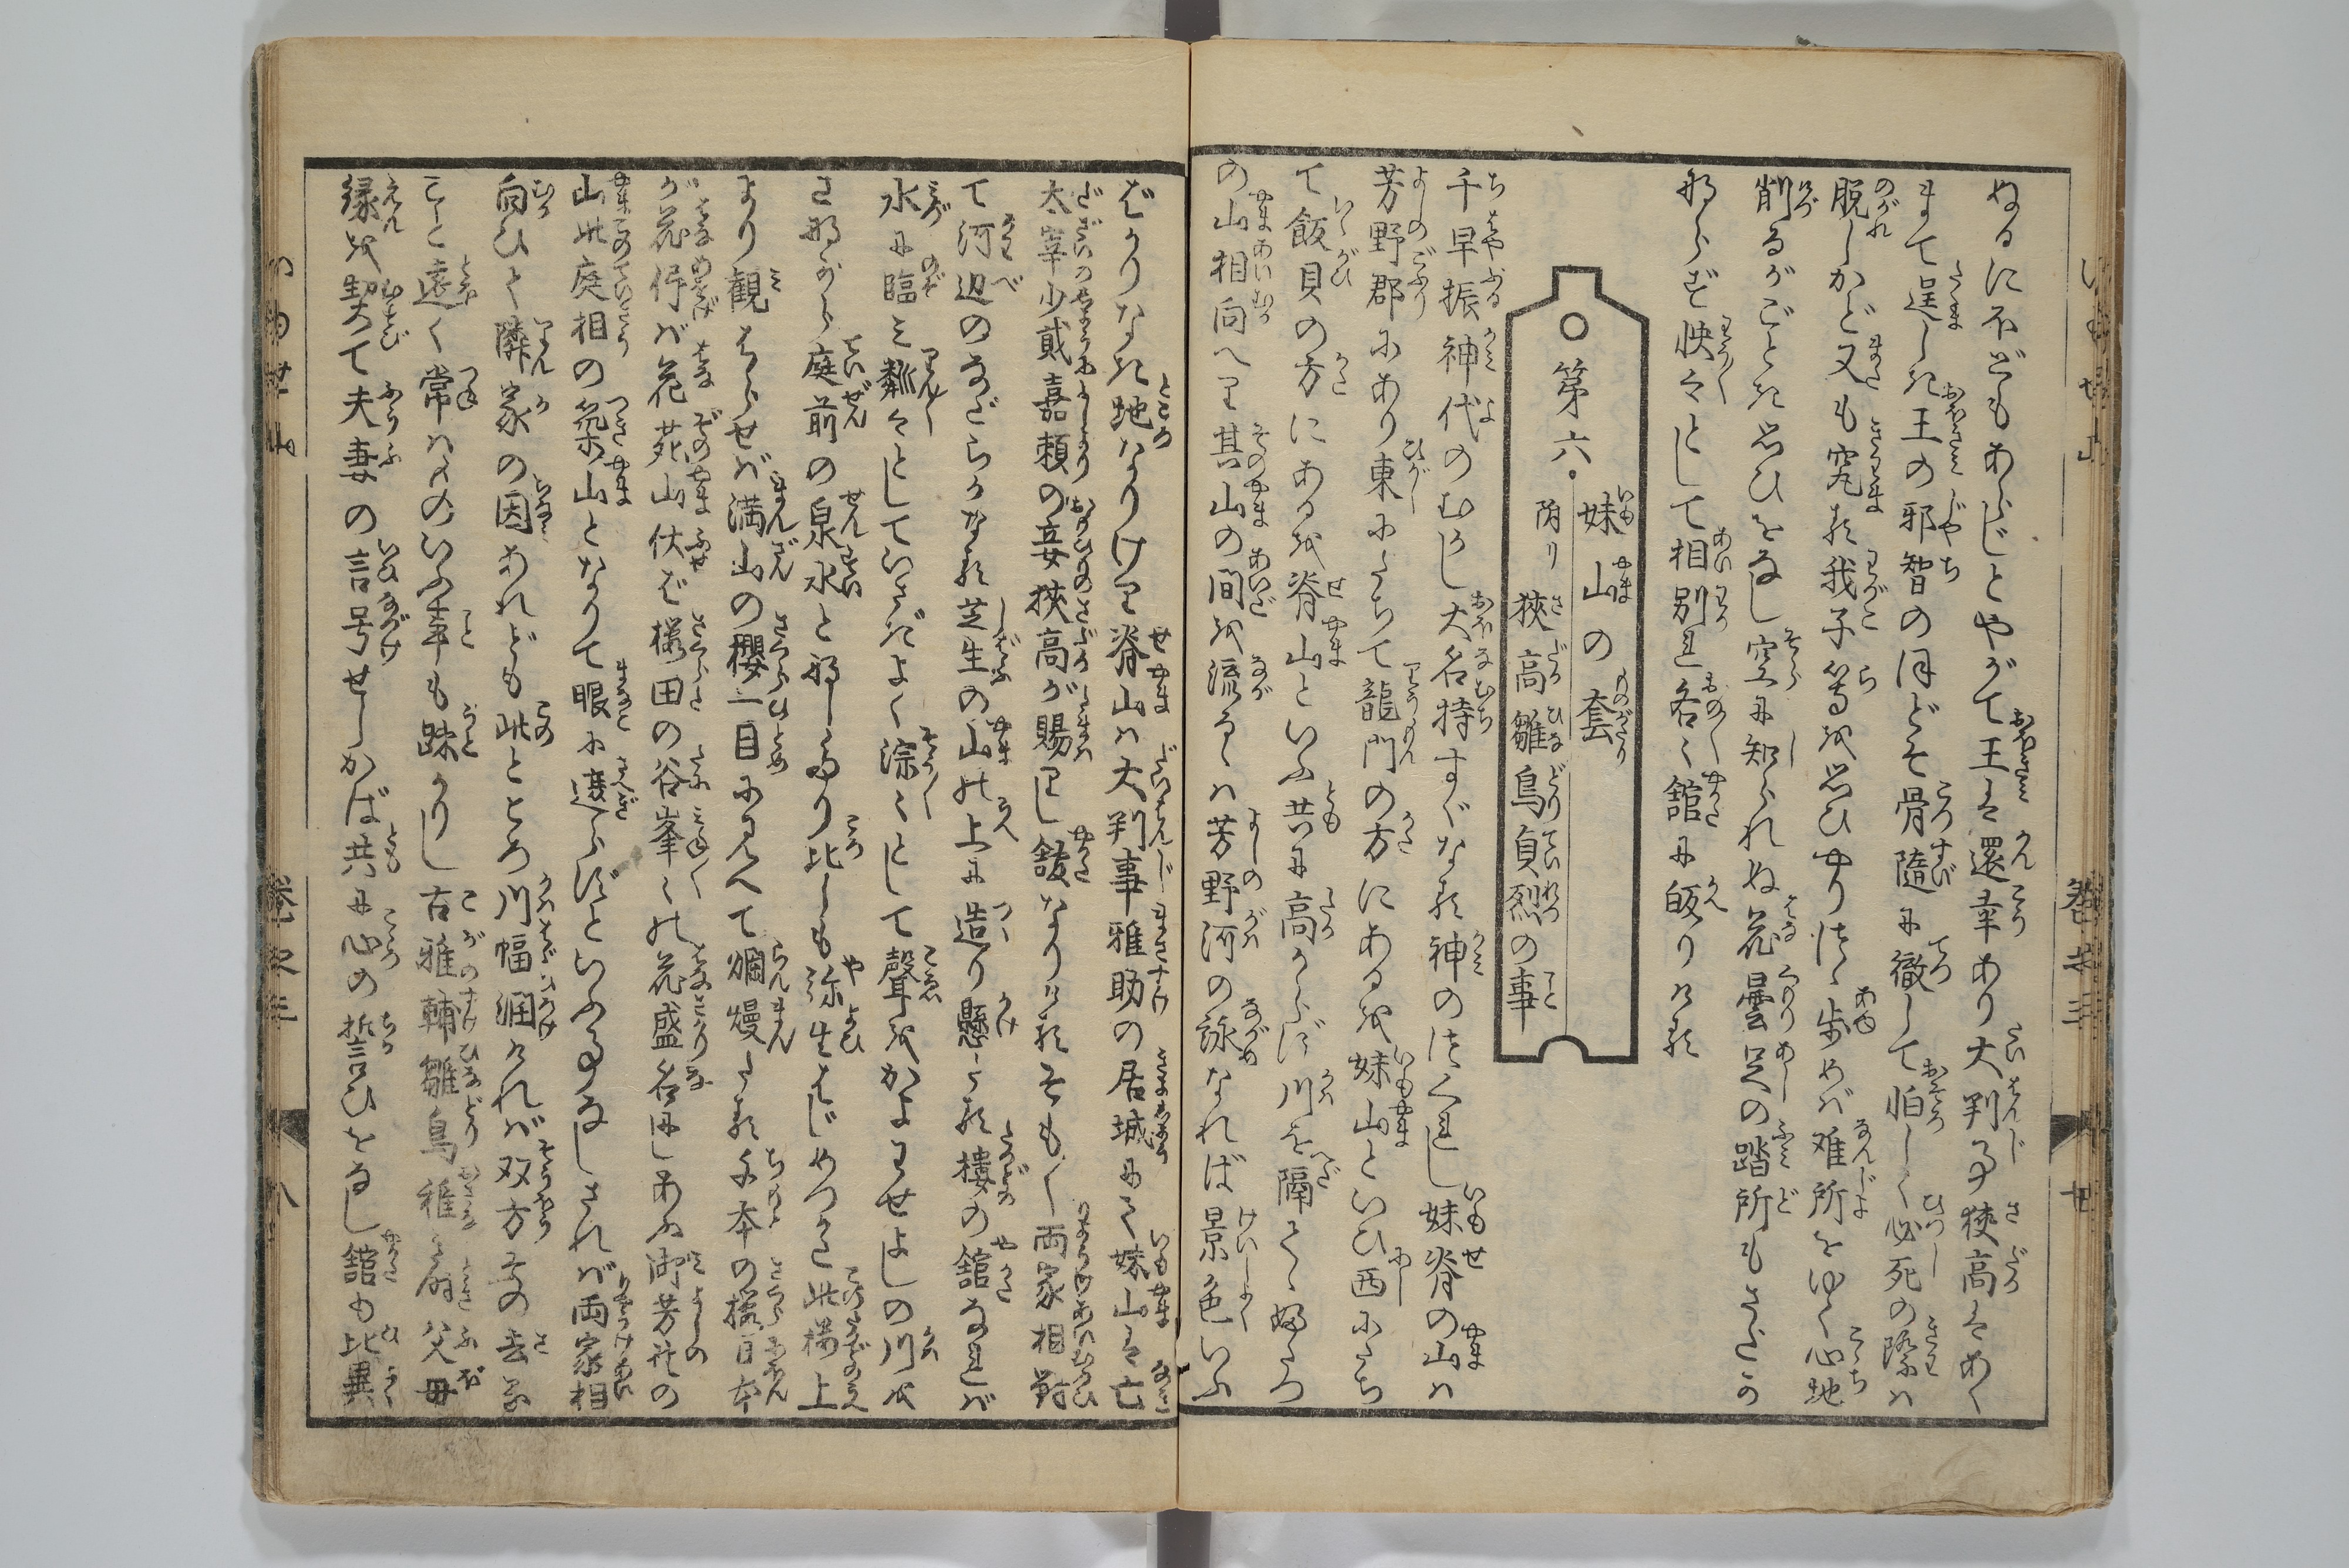 ぬるに不どもあらじとやがて王は還幸あり大判事狭高はあく
まて逞しき王の邪智のほどそ骨隨に徹して怕しく必死の際は
脱しかど又も究る我子等を思ひやりつゝ歩めば难所をゆく心地
削るがごとき思ひをなし空に知られぬ花曇足の踏所もさだか
ならず怏々として相別れ各〻舘に皈りける
第六
妹山の套
附リ 狭高雛鳥貞烈の事
千早振神代のむかし大名持すぐなる神のつくれし妹脊の山は
芳野郡にあり東にたちて龍門の方にあるを妹山といひ西にたち
て飯貝の方にあるを脊山といふ共に高からず川を隔てゝ
の山相向へり其山の間を流るゝは芳野河の詠なれば景色いふ
ばかりなき地なりけり脊山は大判事雅助の居城にて妹山は亡
太宰少貳嘉頼の妾狭高が賜りし舘なりけるそも〳〵両家相對
て河辺のなだらかなる芝生の山の上に造り懸たる樓の舘なれば
水に臨み粼々としていさぎよく淙〻として聲をかよわせよしの川を
さながら庭前の泉水となしたり比しも弥生はじめつかた此樓上
より観はらせば満山の櫻一目に見へて爛熳たる千本の桜日本
が花侭ば花苑山伏ば桜田の谷峯〻の花盛名にしあふ御芳野の
山此庭相の築山となりて眼に遮らずといふ事なしされば両家相
向ひて隣家の因あれども此ところ川幅濶ければ双方の
こと遠く常は人のいふ事も踈かりし古雅輔雛鳥稚き時父母
縁を契て夫妻の言号せしかば共に心の誓ひをなし舘も比異